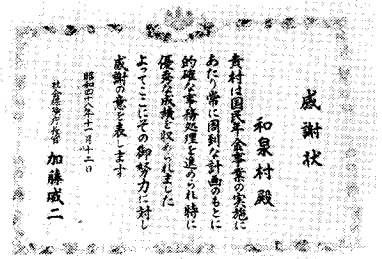 感謝状
和泉村殿
貴村は国民年金事業の実施に
あたり常に周到な計画のもとに
的確な事務処理を進められ特に
優秀な成績を収められました
よってここにその御努力に対し
感謝の意を表します
昭和四十八年十一月十二日
社会保険庁長官 加藤威二